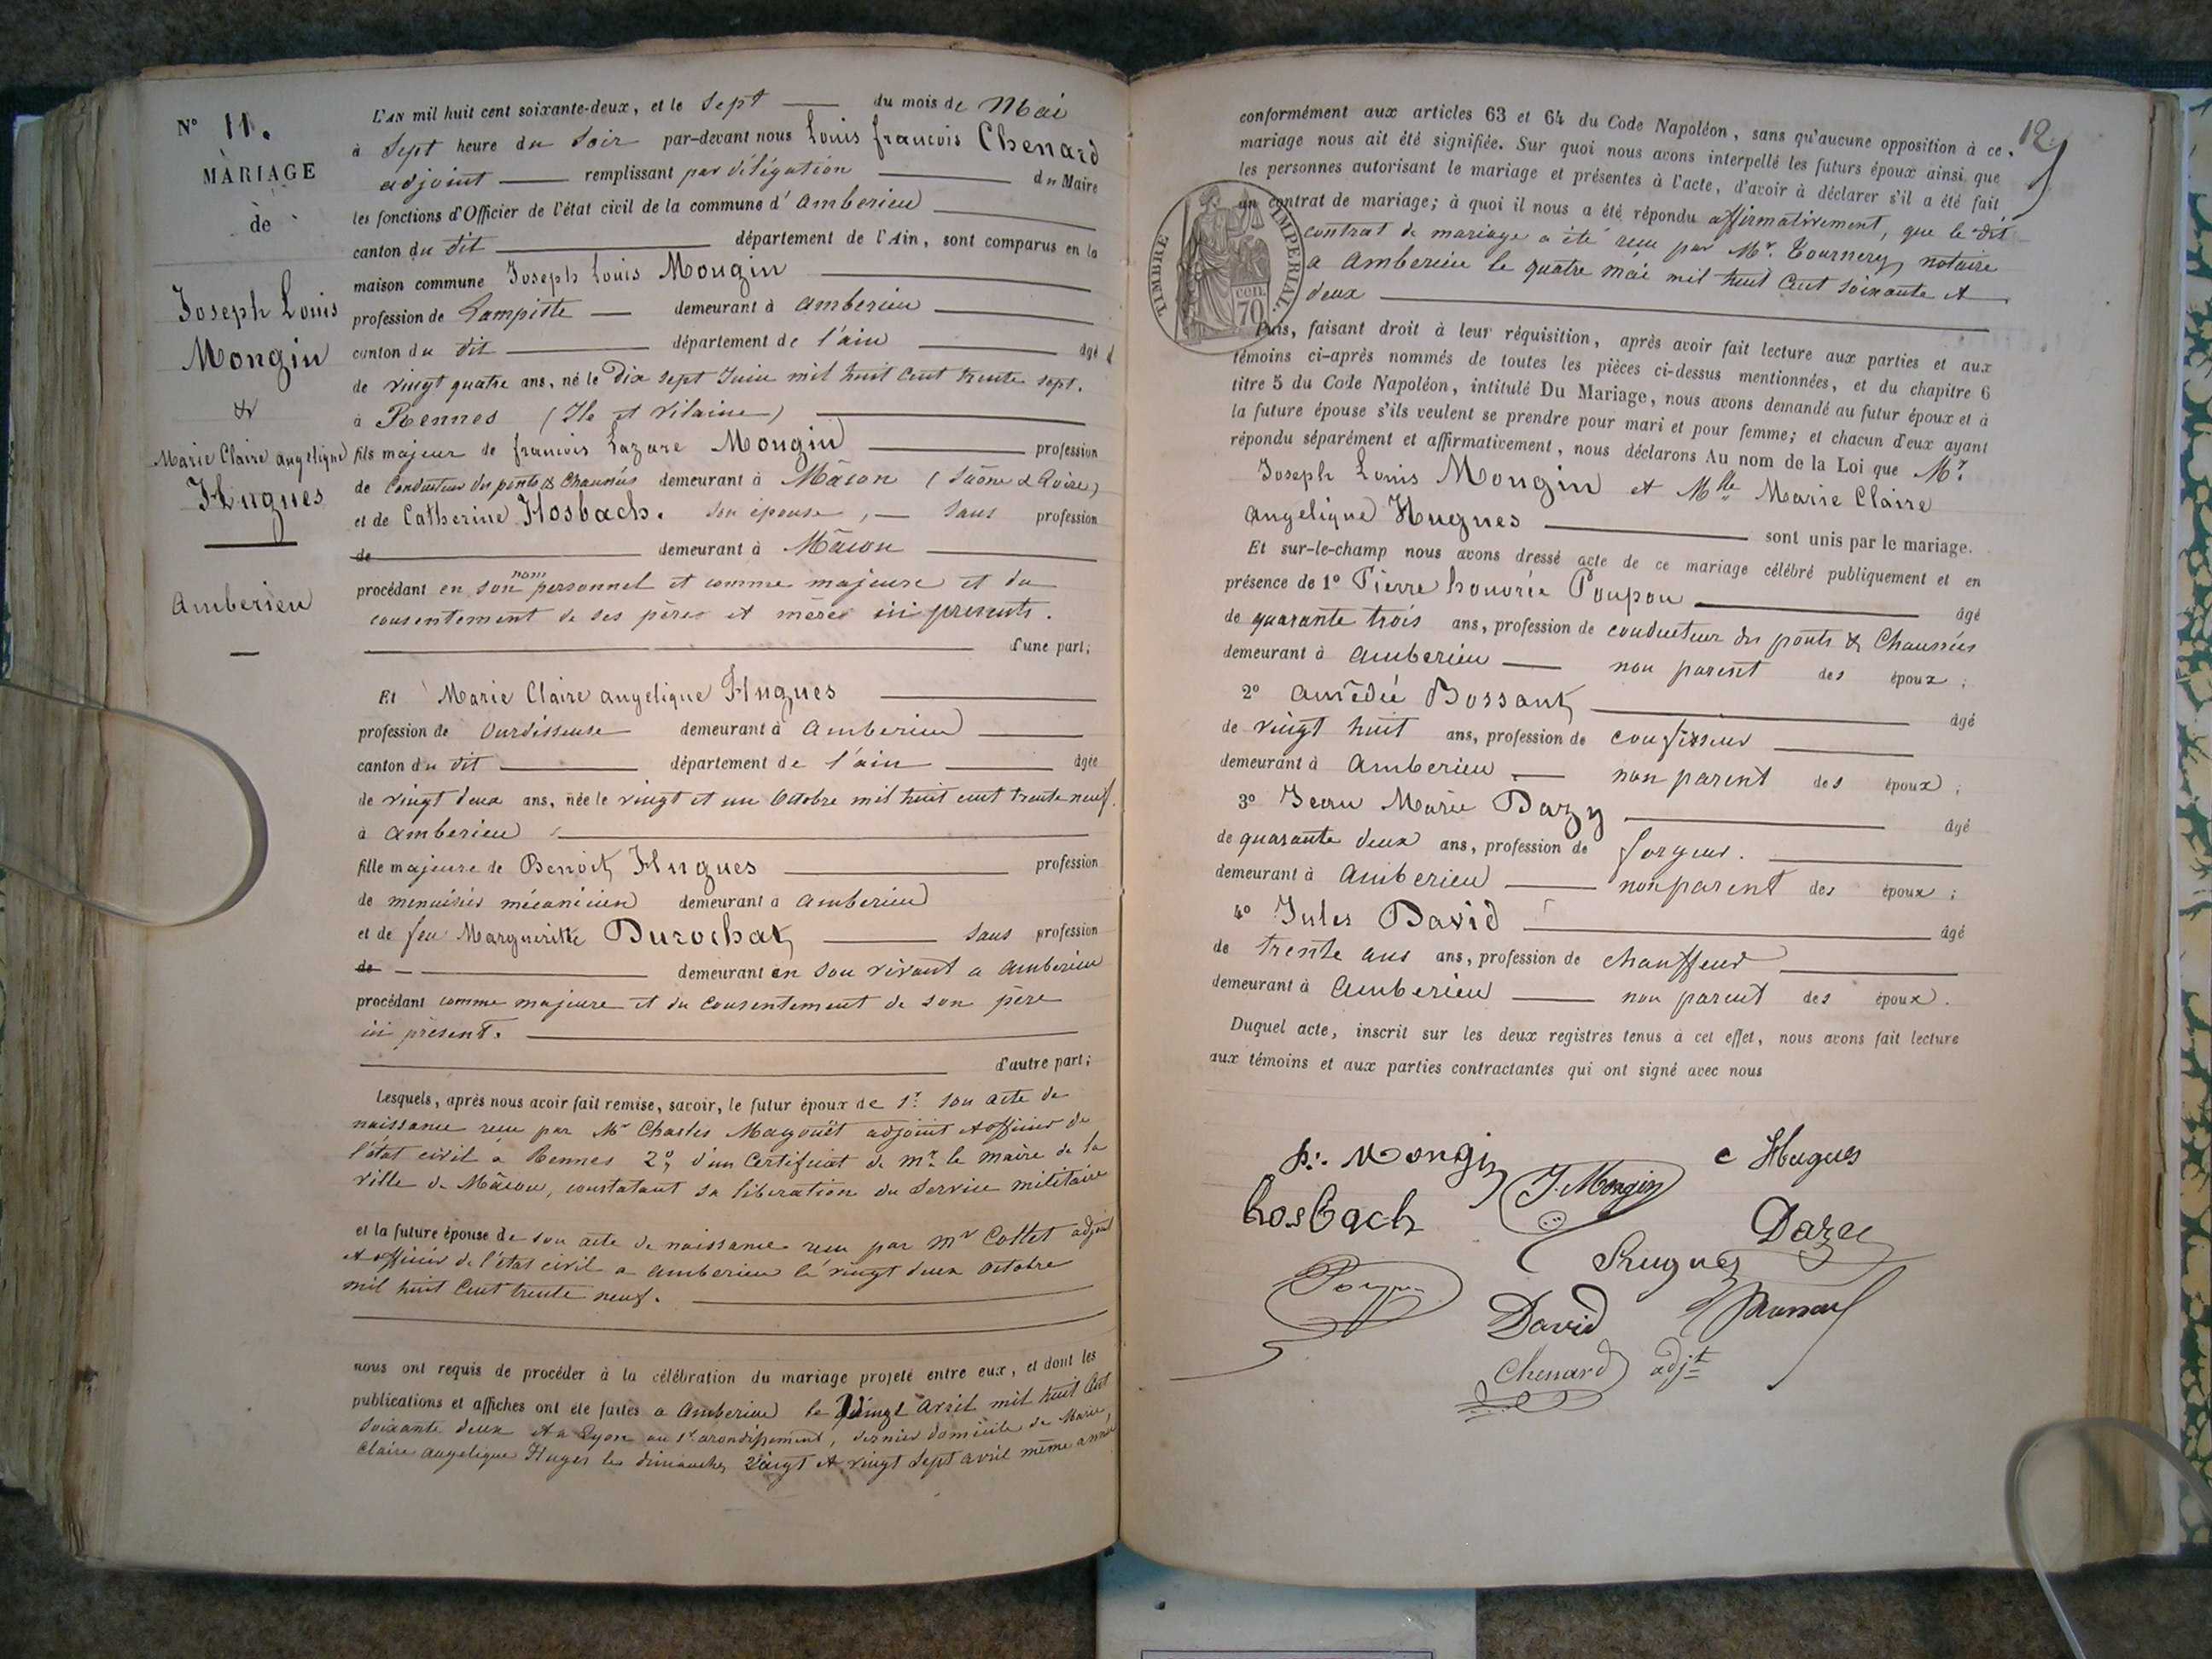 N° 11.
MARIAGE
de
Joseph Louis
Mongin
&
Marie Claire angelique
Hugues
Amberieu
L'an mil huit cent soixante-deux, et le Sept du mois de Mai
à Sept heure du Soir par-devant nous Louis francois Chenard
adjoint remplissant par délégation du Maire
les fonctions d'Officier de l'état civil de la commune d'Amberieu
canton du dit département de l'Ain, sont comparus en la
maison commune Joseph Louis Mongin
profession de Lampiste demeurant à Amberieu
canton du dit département de l'ain âgé
de vingt quatre ans, né le Dix sept Juin mil huit Cent trente sept.
à Rennes (Ile et Vilaine)
fils majeur de francois Lazare Mongin profession
de Conducteur des ponts & Chaussées demeurant à Mâcon (Saône & Loire)
et de Catherine Hosbach. son épouse, sans profession
de demeurant à Mâcon
procédant en son nom personnel et comme majeure et du
consentement de ses pères et mères ici presents.
d'une part;
Et Marie Claire angelique Hugues
profession de Ourdisseuse demeurant à Amberieu
canton du dit département de l'ain âgée
de vingt deux ans, née le vingt et un Octobre mil huit cent trente neuf.
à Amberieu
fille majeure de Benoit Hugues profession
de menuisier mécanicien demeurant à Amberieu
et de feu Margueritte Durochat sans profession
de demeurant en son vivant a Amberieu
procédant comme majeure et du consentement de son père
ici présent.
d'autre part;
Lesquels, après nous avoir fait remise, savoir, le futur époux de 1° son acte de
naissance reçu par Mr Charles Magouët adjoint et officier de
l'état civil à Rennes 2° d'un Certificat de Mr le Maire de la
ville de Mâcon, constatant sa libération du Service militaire
et la future épouse de son acte de naissance reçu par Mr Cottet adjoint
et officier de l'état civil a Amberieu le vingt deux octobre
mil huit Cent trente neuf.
nous ont requis de procéder à la célébration du mariage projeté entre eux, et dont les
publications et affiches ont été faites a Amberieu le vingt avril mil huit Cent
soixante deux et a Lyon au 1er arondissement, dernier domicile de Marie
Claire angelique Hugues les dimanches vingt et vingt sept avril même année
12.
conformément aux articles 63 et 64 du Code Napoléon, sans qu'aucune opposition à ce
mariage nous ait été signifiée. Sur quoi nous avons interpellé les futurs époux ainsi que
les personnes autorisant le mariage et présentes à l'acte, d'avoir à déclarer s'il a été fait
un contrat de mariage; à quoi il nous a été répondu affirmativement, que le dit
contrat de mariage a été reçu par Mr. Tournery, notaire
a Amberieu le quatre mai mil huit Cent soixante et
deux
TIMBRE IMPERIAL.
cen.
70
Puis, faisant droit à leur réquisition, après avoir fait lecture aux parties et aux
témoins ci-après nommés de toutes les pièces ci-dessus mentionnées, et du chapitre 6
titre 5 du Code Napoléon, intitulé Du Mariage, nous avons demandé au futur époux et à
la future épouse s'ils veulent se prendre pour mari et pour femme; et chacun d'eux ayant
répondu séparément et affirmativement, nous déclarons Au nom de la Loi que Mr.
Joseph Louis Mongin et Mlle Marie Claire
Angelique Hugues sont unis par le mariage.
Et sur-le-champ nous avons dressé acte de ce mariage célébré publiquement et en
présence de 1° Pierre honorée Poupon âgé
de quarante trois ans, profession de conducteur des ponts & Chaussées
demeurant à Amberieu non parent des époux;
2° Amédée Bossant âgé
de vingt huit ans, profession de confisseur
demeurant à Amberieu non parent des époux;
3° Jean Marie Dazy âgé
de quarante deux ans, profession de forgeur.
demeurant à Amberieu non parent des époux;
4° Jules David âgé
de trente ans ans, profession de chauffeur
demeurant à Amberieu non parent des époux.
Duquel acte, inscrit sur les deux registres tenus à cet effet, nous avons fait lecture
aux témoins et aux parties contractantes qui ont signé avec nous
Mongin
c Hugues
J. Mongin
hosbach
Hugues
David
Chenard adjt